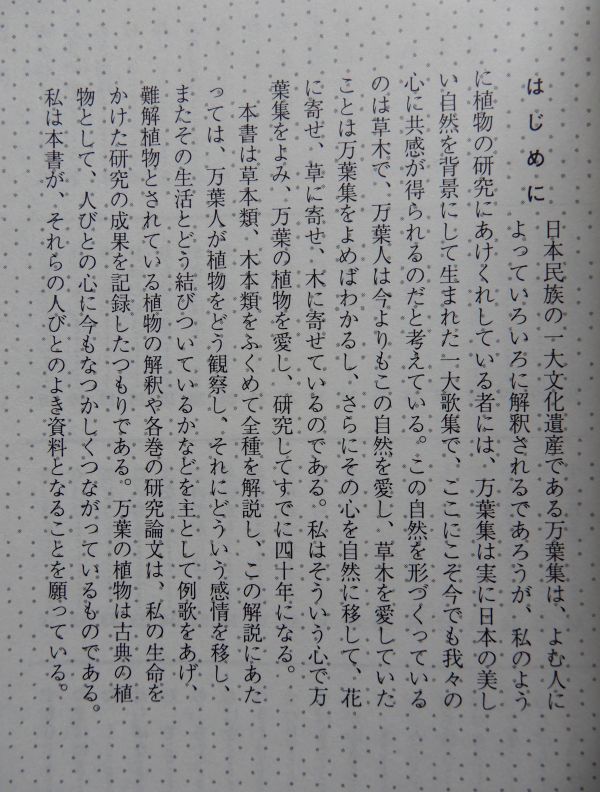 はじめに
日本民族の一大文化遺産である万葉集は、よむ人に
よっていろいろに解釈されるであろうが、私のよう
に植物の研究にあけくれしている者には、万葉集は実に日本の美し
い自然を背景にして生まれた一大歌集で、ここにこそ今でも我々の
心に共感が得られるのだと考えている。この自然を形づくっている
のは草木で、万葉人は今よりもこの自然を愛し、草木を愛していた
ことは万葉集をよめばわかるし、さらにその心を自然に移して、花
に寄せ、草に寄せ、木に寄せているのである。私はそういう心で万
葉集をよみ、万葉の植物を愛し、研究してすでに四十年になる。
本書は草本類、木本類をふくめて全種を解説し、この解説にあた
っては、万葉人が植物をどう観察し、それにどういう感情を移し、
またその生活とどう結びついているかなどを主として例歌をあげ、
難解植物とされている植物の解釈や各巻の研究論文は、私の生命を
かけた研究の成果を記録したつもりである。万葉の植物は古典の植
物として、人びとの心に今もなつかしくつながっているものである。
私は本書が、それらの人びとのよき資料となることを願っている。